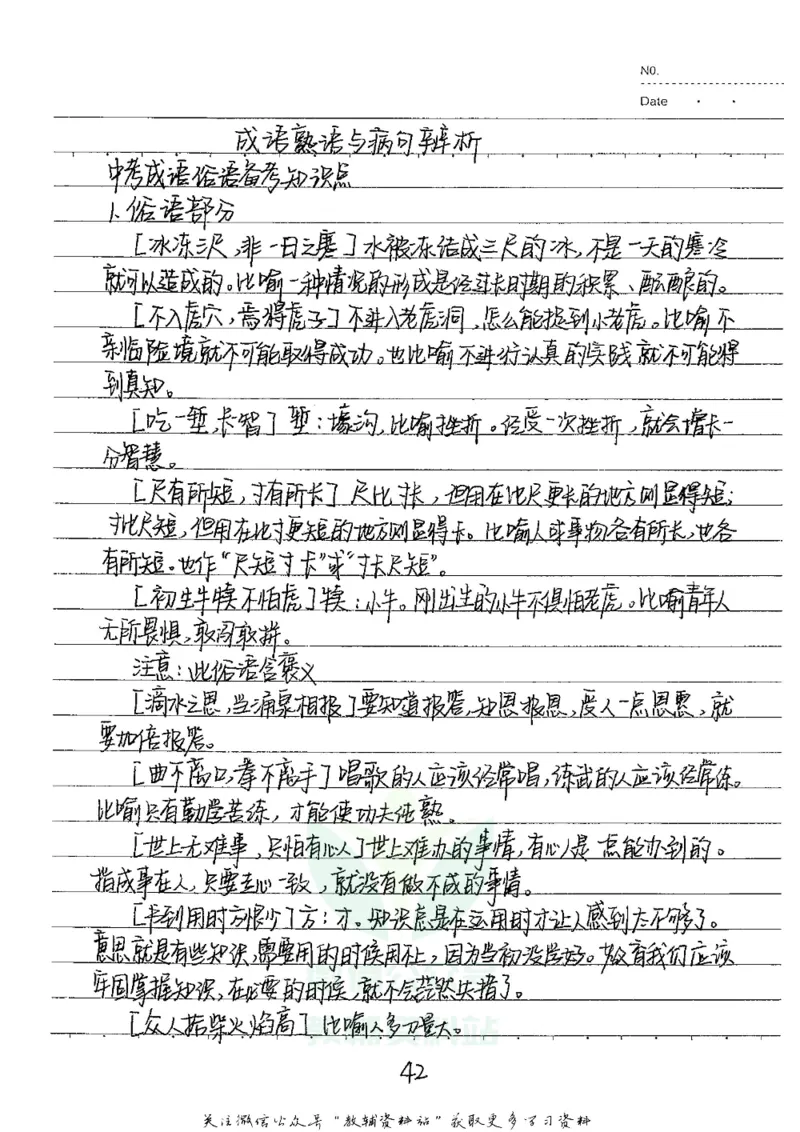 NO.
Date
成语熟语与病句辨析
中考成语俗语备考知识点
1.俗语部分
[冰冻三尺,非一日之寒]水被冻结成三尺的冰,不是一天的寒冷
就可以造成的。比喻一种情况的形成是经过长时期的积累、酝酿的。
[不入虎穴,焉得虎子]不进入老虎洞,怎么能捉到小老虎。比喻不
亲临险境就不可能取得成功。也比喻不进行认真的实践就不可能得
到真知。
[吃一堑,长智]堑:壕沟,比喻挫折。经受一次挫折,就会增长一
分智慧。
[尺有所短,寸有所长]尺比寸长,但用在比尺更长的地方则显得短;
寸比尺短,但用在比寸更短的地方则显得长。比喻人或事物各有所长,也各
有所短。也作“尺短寸长”或“寸长尺短”。
[初生牛犊不怕虎]犊:小牛。刚出生的小牛不惧怕老虎。比喻青年人
无所畏惧,敢闯敢拼。
注意:此俗语含褒义
[滴水之恩,当涌泉相报]要知道报答,知恩报恩,受人一点恩惠,就
要加倍报答。
[曲不离口,拳不离手]唱歌的人应该经常唱,练武的人应该经常练。
比喻只有勤学苦练,才能使功夫纯熟。
[世上无难事,只怕有心人]世上难办的事情,有心人是 点能办到的。
指成事在人,只要走心一致,就没有做不成的事情。
[书到用时方恨少]方:才。知识总是在运用时才让人感到太不够了。
意思就是有些知识,需要用的时候用不上,因为当初没学好。教育我们应该
牢固掌握知识,在必要的时候,就不会茫然失措了。
[众人拾柴火焰高]比喻人多力量大。
42
关注微信公众号“教辅资料站”获取更多学习资料
教辅资料站